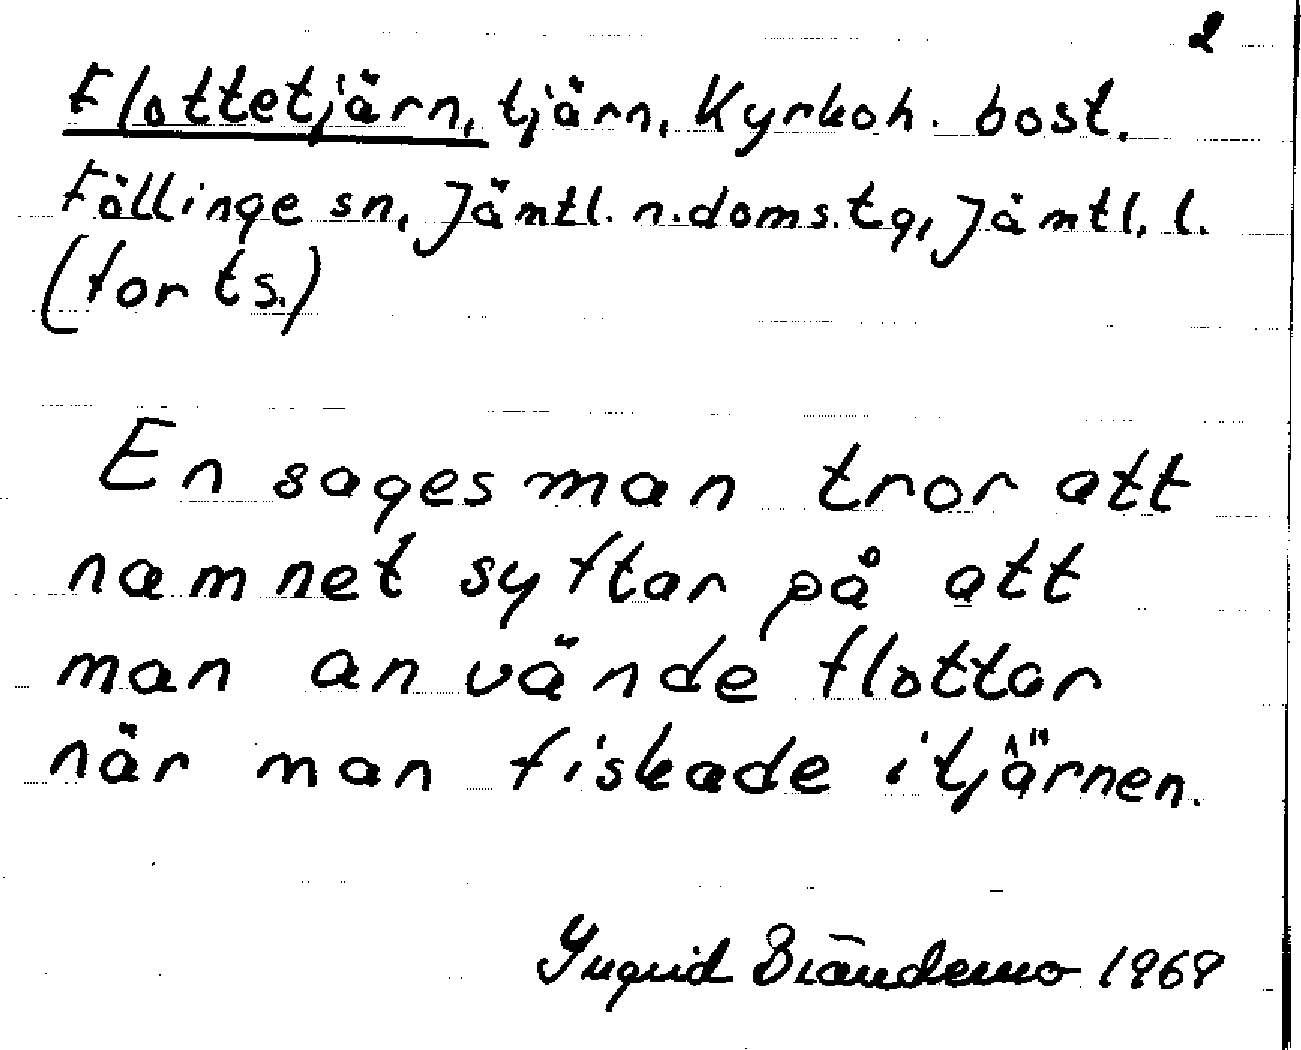 2
Flottetjärn, tjärn, Kyrkoh. bost.
Föllinge sn, Jämtl. n. doms. tg, Jämtl. l.
(forts.)
En sagesman tror att
namnet syftar på att
man använde flottar
när man fiskade i tjärnen.
Ingrid Brändemo 1969